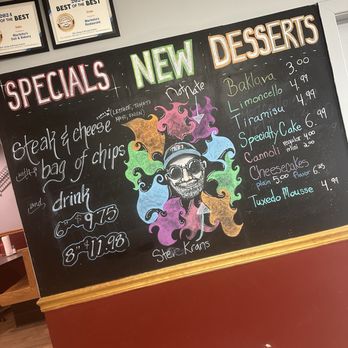 BEST OF THE BEST
BEST OF THE BEST
SPECIALS
NEW
DESSERTS
Steak & cheese
with bag of chips
and drink
9.75
8" $11.98
Do Not
Steve Krans
Baklava 3.00
Limoncello 4.99
Tiramisu 4.99
Specialty Cake 6.99
Cannoli regular 4.00
mini 2.00
Cheesecakes
plain 5.00 Flavor 6.25
Tuxedo Mousse 4.99